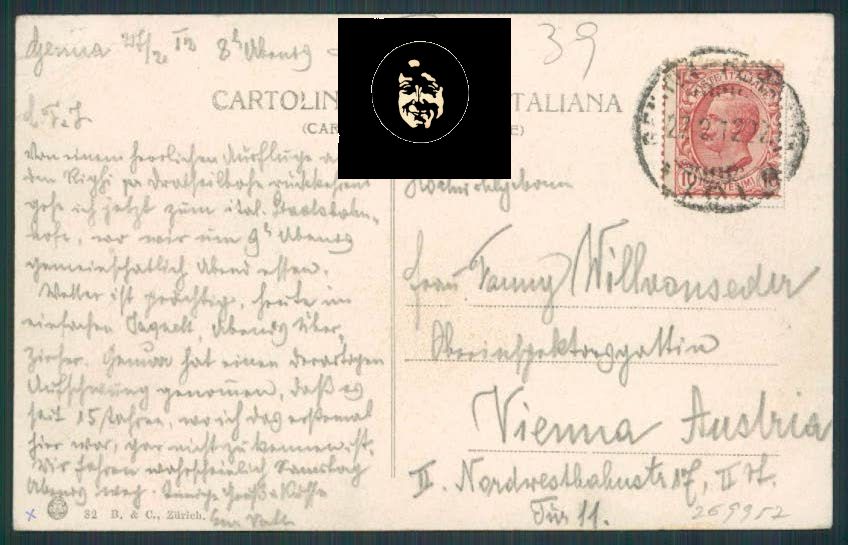 Genua 27/2. 12 8h Abends
39
CARTOLIN TALIANA
(CAR E)
POSTE ITALIANE
27 2 12
CENTESIMI
L. F. J
Von einem herrlichen Ausfluge a
dem Righi per Drahtseilbahn rückkehrend
gehe ich jetzt zum ital. Staatsbahn-
hofe, wo wir um 9h Abends
gemeinschaftlich Abend essen.
Wetter ist prächtig, heute im
einfachen Jaquett, Abends Über-
zieher. Genua hat einen derartigen
Aufschwung genommen, daß es
seit 15 Jahren, wo ich das erstemal
hier war, gar nicht zu kennen ist.
Wir fahren wahrscheinlich Samstag
Abends weg. Innige Grüße & Küsse
Hochwohlgeboren
Frau Fanny Willvonseder
Oberinspektorsgattin
Vienna Austria
II. Nordwestbahnstr 17, II St.
Tür 11.
269952
x 32 B. & C., Zürich.